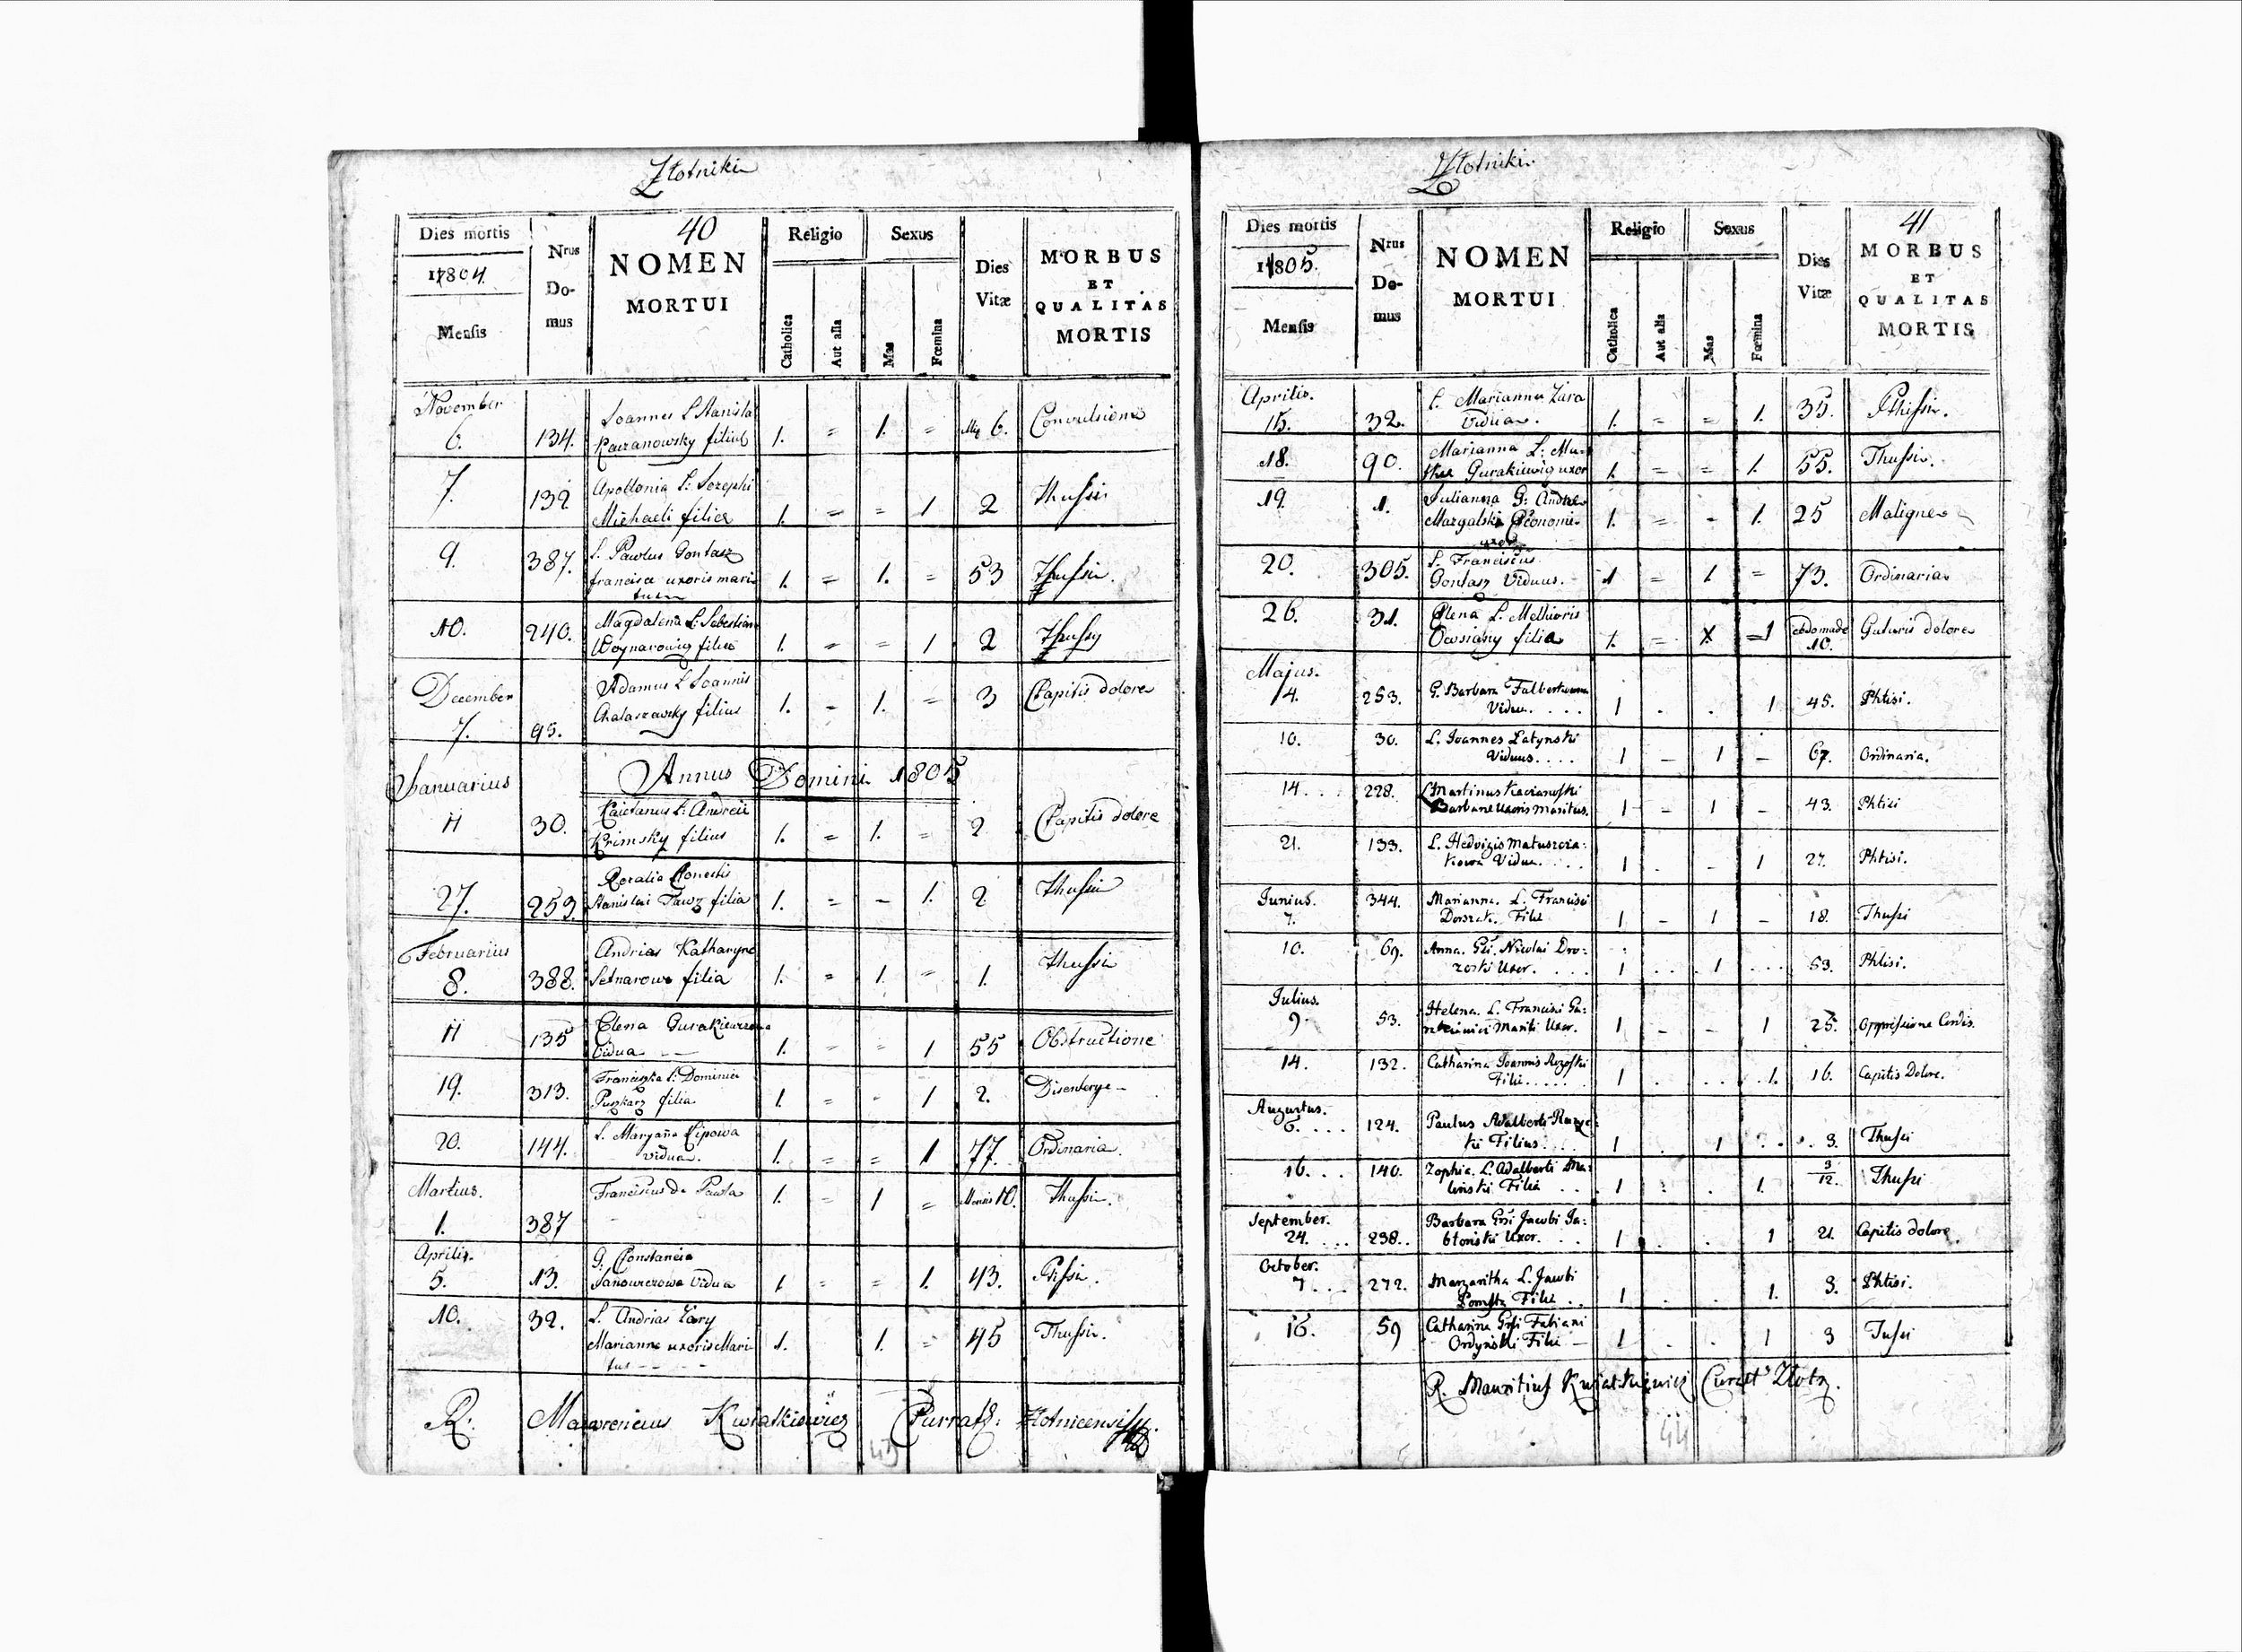 Złotniki
40
Dies mortis
1804.
Mensis
Nrus
Do-
mus
NOMEN
MORTUI
Religio
Catholica
Aut alia
Sexus
Mas
Fœmina
Dies
Vitæ
MORBUS
ET
QUALITAS
MORTIS
November
6. 134. Joannes L Stanisla
Kaczanowsky filius 1. = 1. = 6. Convulsione
7. 132 Apollonia L: Jozephi
Michaeli filia 1. = = 1 2 Thussi
9. 387. L. Pawlus Gontasz
francisca uxoris mari
tum 1. = 1. = 53 Thussi.
10. 240. Magdalena L: Sebestian
Woynarowicz filia 1. = = 1 2 Thussy
December
7. 95. Adamus L Joannis
Chalaszawsky filius 1. = 1. = 3 Capitis dolore
Januarius
Annus Domini 1805
11 30. Kaietanus L: Andreii
Krimsky filius 1. = 1. = 2 Capitis dolore
27. 253. Rozalia Honestis
Stanislai Tawz filia 1. = - 1. 2 Thussi
Februarius
8. 388. Andrias Katharyna
Setnarowa filia 1. = 1. = 1. Thussi
11 135 Elena Gurakiewiczowa
Vidua -- 1. = = 1 55 Obstructione
19. 313. Franciszka L: Dominici
Puszkarz filia 1. = - 1 2. Disenterye -
20. 144. L. Maryaña Lipowa
vidua. 1. = = 1 77. Ordinaria.
Martius.
1. 387 Franciscus de Pawla 1. = 1 = Mensis 10. Thussi.
Aprilis.
5. 13. G. Constancia
Janowiczowa Vidua 1 = = 1. 43. Ptissi.
10. 32. L. Andrias Zary
Marianna uxoris Mari
tus - - - 1. 1. = 45 Thussi.
R: Mawrericius Kwiatkiewicz Currat9: Złotnicensis
43
Złotniki.
41
Dies mortis
1805.
Mensis
Nrus
Do-
mus
NOMEN
MORTUI
Religio
Catholica
Aut alia
Sexus
Mas
Fœmina
Dies
Vitæ
MORBUS
ET
QUALITAS
MORTIS
Aprilis.
15. 32. L. Marianna Zara
Vidua. 1. = = 1. 35. Pthissi.
18. 90. Marianna L: Ma-
Gurakiewicz uxor 1. = = 1. 55. Thussi.
19. 1. Julianna G: Andrae
Mazgalski Œconomi
uxor 1. = - 1. 25 Maligne
20. 305. L. Franciscus
Gontasz Viduus. 1 = 1 = 73. Ordinaria
26. 31. Elena L. Melhioris
Owsiany filia 1. = X =1 ebdomade
10. Guturis dolore
Majus.
4. 253. G. Barbara Falbertowna
Vidua. . . . 1 . . 1 45. Phtisi.
10. 30. L. Joannes Łatynski
Viduus. . . . 1 - 1 - 67. Ordinaria.
14. . . 228. L Martinus Kacianofski
Barbarae Uxoris Maritus. 1 - 1 - 43. Phtisi
21. 133. L. Hedvigis Matuszcza:
kowa Vidua. . . . 1 . - 1 27. Phtisi.
Junius.
7. 344. Marianna. L. Francisci
Dorszak. Filia 1 - 1 - 18. Thussi
10. 69. Anna. Gsi. Nicolai Dro-
zoski Uxor. . . . 1 . . 1 . . . 53. Phtisi.
Julius.
9. 53. Helena. L. Francisci Gu-
Mariti Uxor. 1 - - 1 25. Oppressione Cordis.
14. 132. Catharina Joannis Rozoski
Filia. . . . 1 . . . 1. 16. Capitis Dolore.
Augustus.
6. . . . 124. Paulus Adalberti
ki Filius. . . 1 . 1 . . . 3. Thussi
16. . . 140. Zophia. L. Adalberti Ma:
linski Filia . . . 1 : . 1. 3/12. Thussi
September.
24. . . . 238. . Barbara Gsi Jacobi Ja:
błonski Uxor. . . 1 . . 1 21. Capitis dolore.
October.
7. . . 272. Margaritha L. Jacobi
Filia . . 1 . . 1. 3. Phtisi.
16. 59 Catharina Gsi Fabiani
Ordynski Filia - 1 . . 1 3 Tussi
R. Mauritius Kwiatkiewicz Curat9 Złotn.
44